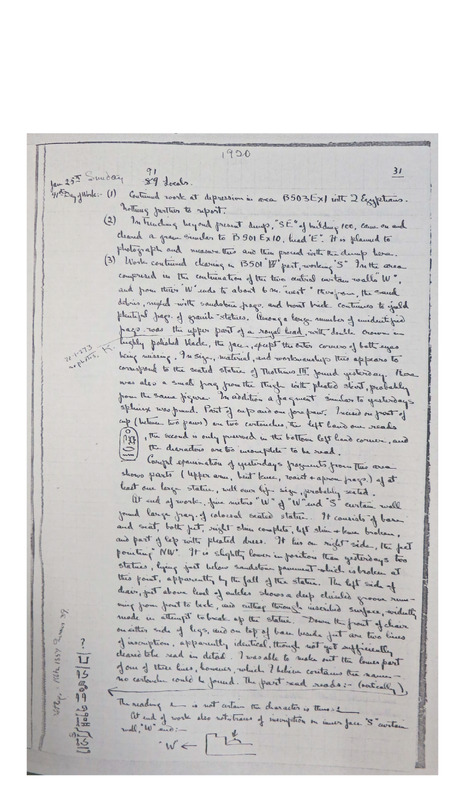 1920
31
Jan 25th Sunday 91
59 Locals.
9th Day of Work:- (1) Continued work at depression in area B503 Ex1 with 2 Egyptians.
Nothing further to report.
(2) In trenching beyond present dump, "SE" of building 100, came on and
cleared a grave similar to B501 Ex10, head "E". It is planned to
photograph and measure this and then proceed with the dump here.
(3) Work continued clearing in B501 part, working "S" In the area
comprised in the continuation of the two curtain walls "W"
and from their "W" ends to about 6 m. west throughout, the sand
debris, mixed with sandstone frags. and burnt brick continues to yield
plentiful frags of granite statues. Among a large number of unidentified
frags. was the upper part of a royal head, with double crown in
highly polished black, the face, except the outer corners of both eyes
being missing. In sign, material, and workmanship this appears to
correspond to the seated statue of Thothmes III found yesterday. There
was also a small frag from the thigh with pleated skirt, probably
from the same figure. In addition a fragment similar to yesterdays
sphinx was found. Part of cap and one fore paw. Incised on front of
cap (between two paws) are two cartouches, the left hand one reads
, the second is only preserved in the bottom left hand corner, and
the characters are too incomplete to be read.
Careful examination of yesterdays fragments from this area
shows parts (upper arm, bent knee, waist & apron frags.) of at
least one large statue, well over life size, probably seated.
At end of work, five metres "W" of "W" end "S" curtain wall
found large frag. of colossal seated statue. It consists of base
and seat, both feet, right shin complete, left shin & knee broken,
and part of lap with pleated dress. It lies on right side, the feet
pointing "NW". It is slightly lower in position than yesterdays two
statues, lying just below sandstone pavement which is broken at
this point, apparently by the fall of the statue. The left side of
chair, just above level of ankles shows a deep chiseled groove run-
ning from front to back, and cutting through inscribed surface, evidently
made in attempt to break up the statue. Down the front of chair
on either side of legs, and on top of base beside feet are two lines
of inscription, apparently identical, though not yet sufficiently
cleared to be read in detail. I was able to make out the lower part
of one of these lines, however, which I believe contains the name-
no cartouche could be found. The part read reads:- (vertically)
The reading is not certain the character is thus:-
At end of work also note traces of inscription on inner face "S" curtain
wall, "W" end:-
"W" ←